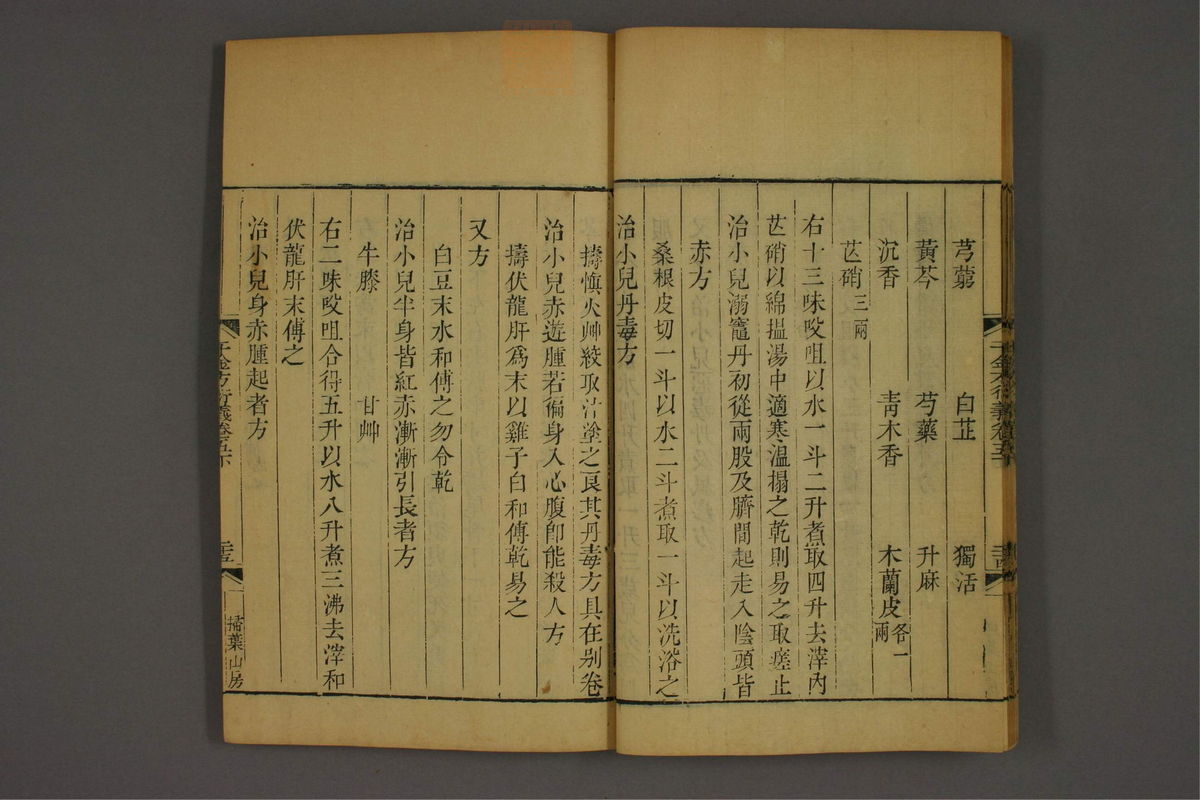 芎藭　白芷　獨活
黃芩　芍藥　升麻
沉香　青木香　木蘭皮各一兩
芒硝三兩
右十三味㕮咀以水一斗二升煮取四升去滓內
芒硝以綿搵湯中適寒溫搨之乾則易之取瘥止
治小兒溺竈丹初從兩股及臍間起走入陰頭皆
赤方
桑根皮切一斗以水二斗煮取一斗以洗浴之
治小兒丹毒方
擣慎火艸絞取汁塗之良其丹毒方具在别卷
治小兒赤遊腫若徧身入心腹卽能殺人方
擣伏龍肝爲末以雞子白和傅乾易之
又方
白豆末水和傅之勿令乾
治小兒半身皆紅赤漸漸引長者方
牛膝　甘艸
右二味㕮咀合得五升以水八升煮三沸去滓和
伏龍肝末傅之
治小兒身赤腫起者方
千金方衍義卷五下
三五
掃葉山房